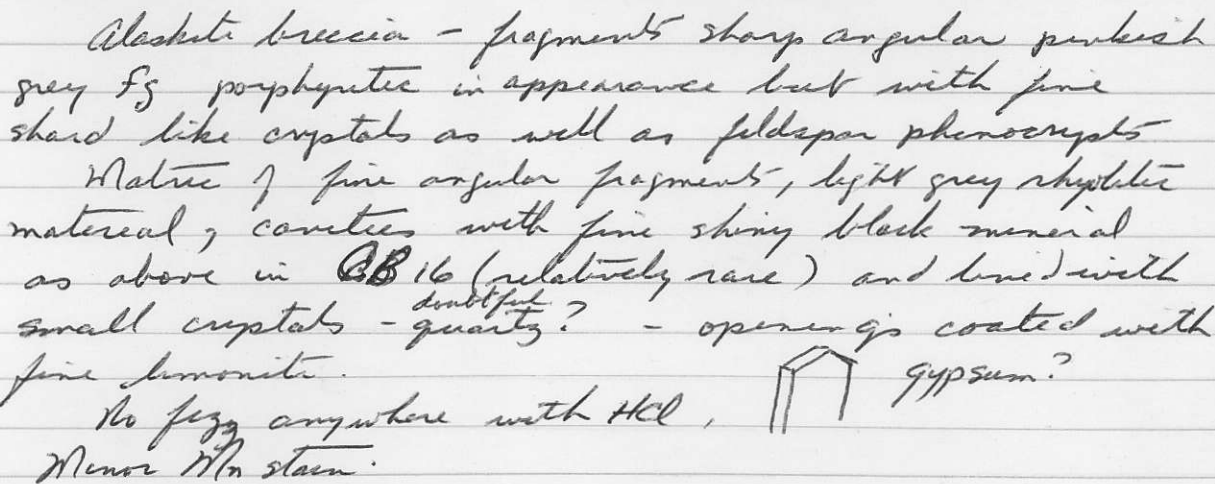 Alaskite breccia - fragments sharp angular pinkish
grey fg porphyritic in appearance but with fine
shard like crystals as well as feldspar phenocrysts
Matrix of fine angular fragments, light grey rhyolitic
material, cavities with fine shiny black mineral
as above in GB 16 (relatively rare) and lined with
doubtful
small crystals - quartz? - openings coated with
fine limonite. gypsum?
No fizz anywhere with HCl,
Minor Mn stain.